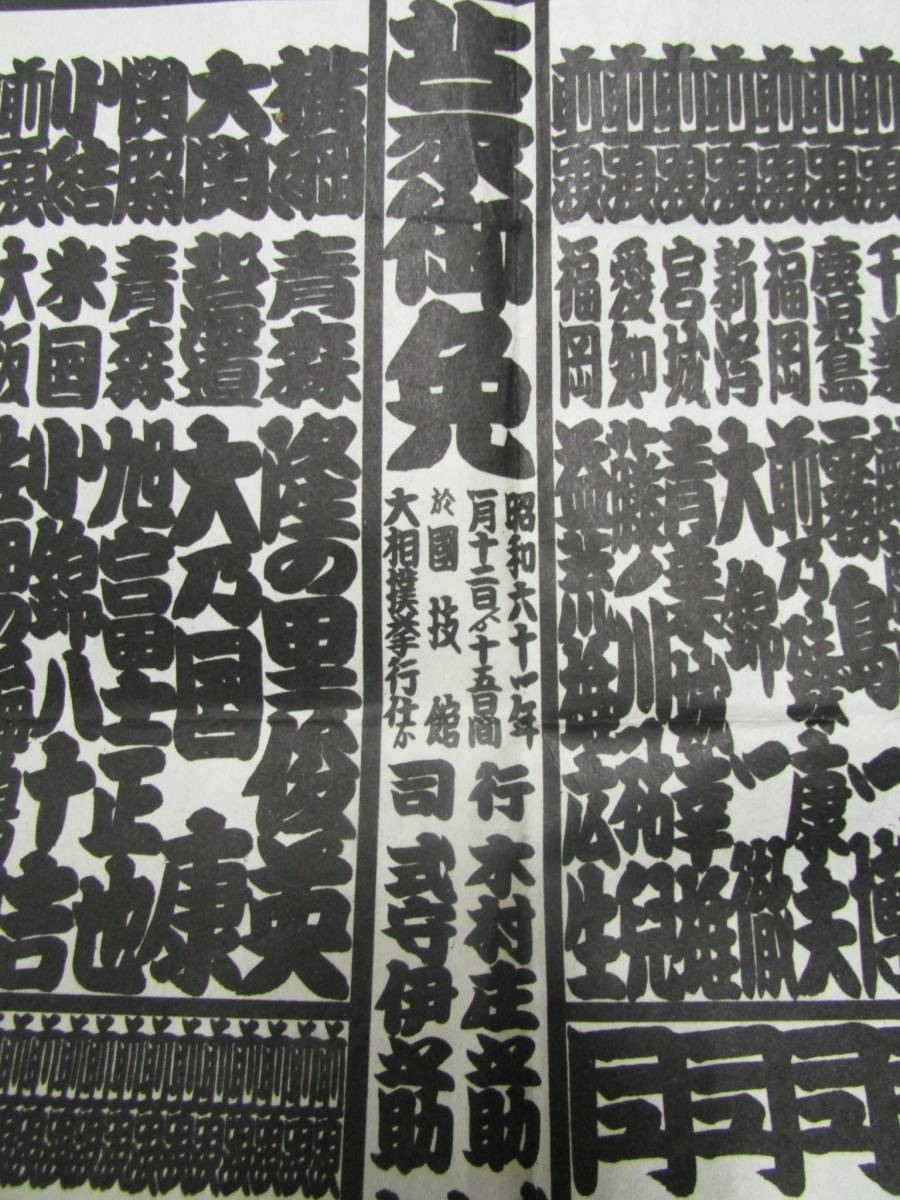 前頭 千葉
前頭 鹿児島 霧島一博
前頭 福岡 前乃臻康夫
前頭 新潟 大錦一徹
前頭 宮城 青葉城幸雄
前頭 愛知 藤ノ川祐兒
前頭 福岡 益荒雄広生
同
同
同
同
蒙御免
昭和六十一年
一月十二日ゟ十五日間
於國技館
大相撲挙行仕候
行司
木村庄之助
式守伊之助
横綱 青森 隆の里俊英
大関 北海道 大乃国康
関脇 青森 旭富士正也
小結 米国 小錦八十吉
前頭 大阪
前頭
前頭
前頭
前頭
前頭
前頭
前頭
前頭
前頭
前頭
前頭
前頭